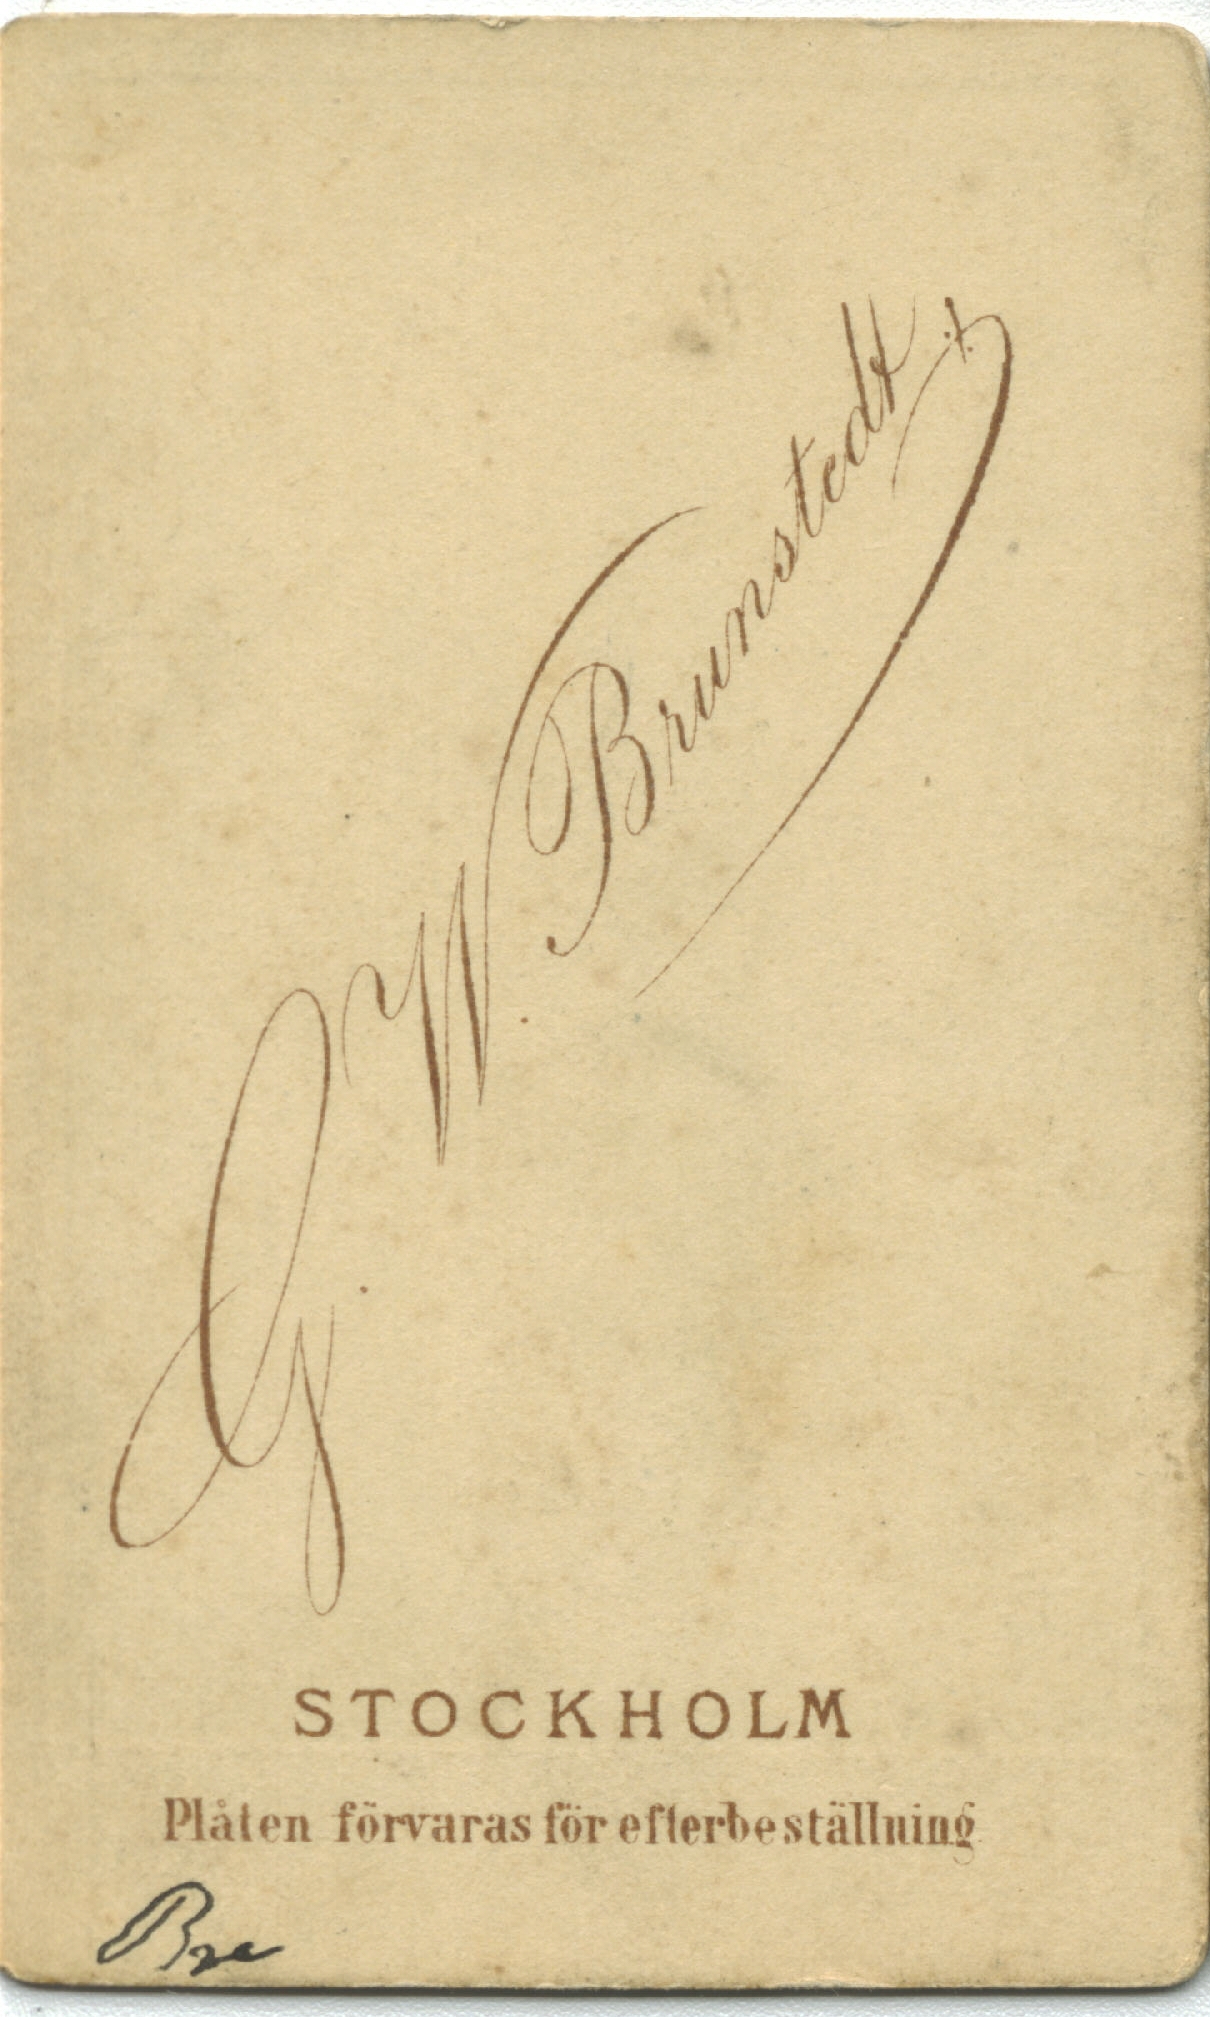 G. W. Brunstedt
STOCKHOLM
Plåten förvaras för efterbeställning